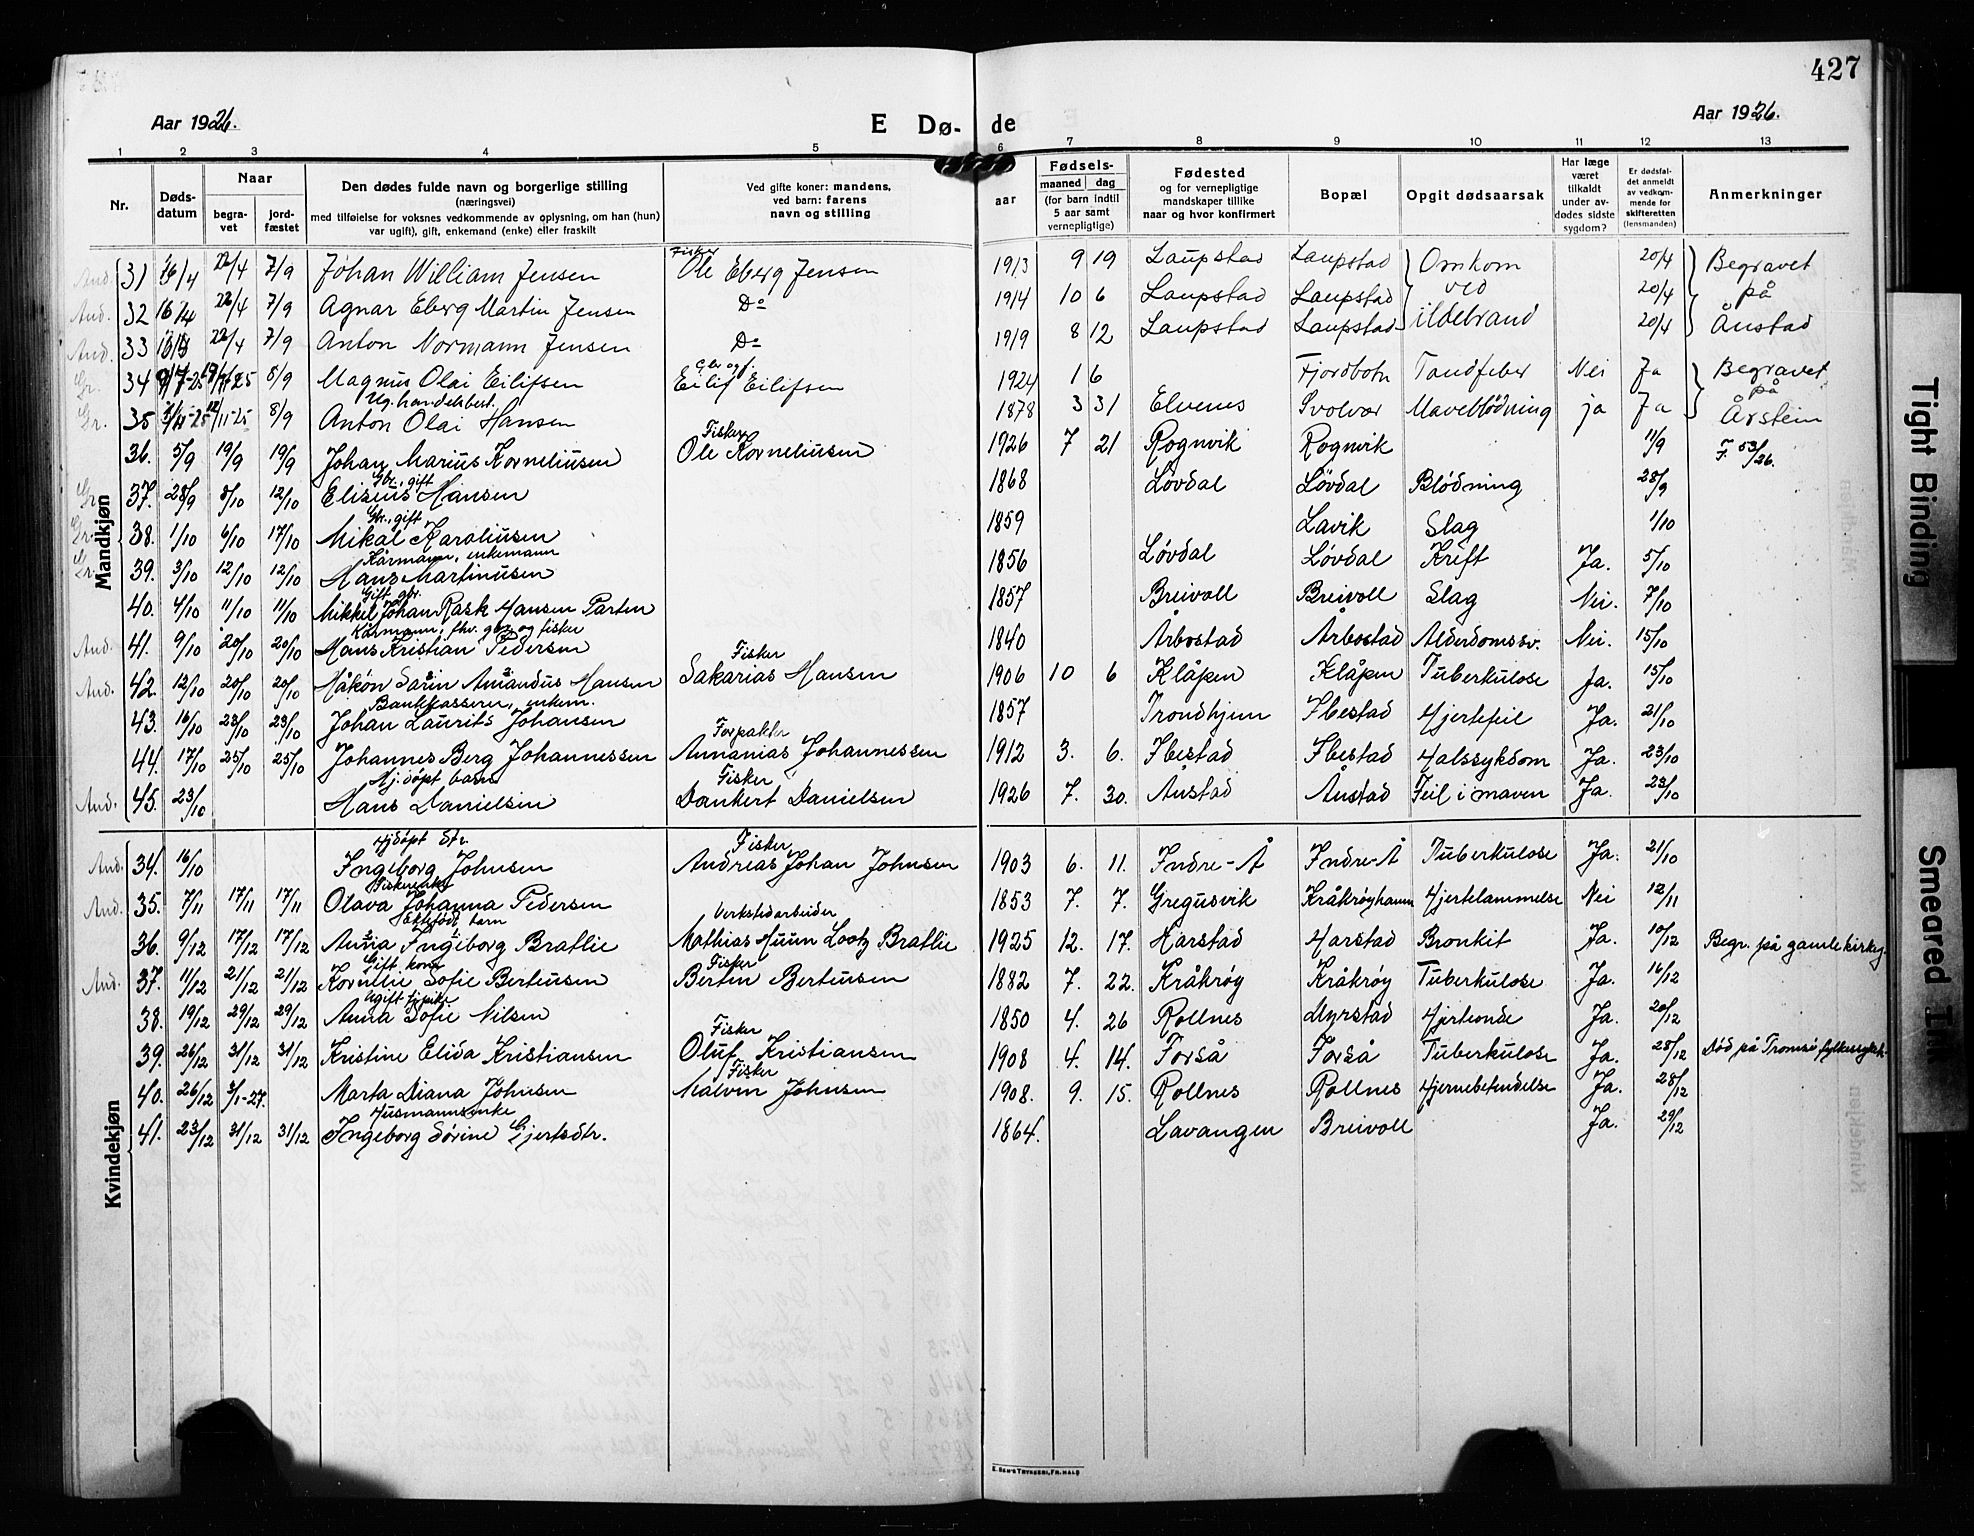 427
Aar 1926.
E Dø-
de
Aar 1926.
1 2 3 4 5 6 7 8 9 10 11 12 13
Nr.
Døds-
datum
Naar
begra-
vet
jord-
fæstet
Den dødes fulde navn og borgerlige stilling
(næringsvei)
med tilføielse for voksnes vedkommende av oplysning, om han (hun)
var ugift), gift, enkemand (enke) eller fraskilt
Ved gifte koner: mandens,
ved barn: farens
navn og stilling
aar
Fødsels-
maaned dag
(for barn indtil
5 aar samt
vernepligtige)
Fødested
og for vernepligtige
mandskaper tillike
naar og hvor konfirmert
Bopæl
Opgit dødsaarsak
Har læge
været
tilkaldt
under av-
dødes sidste
sygdom?
Er dødsfal-
det anmeldt
av vedkom-
mende for
skifteretten
(lensmanden)
Anmerkninger
Mandkjøn
And. 31 16/4 22/4 7/9 Johan William Jensen Fisker Ole Eberg Jensen 1913 9 19 Laupstad Laupstad Omkom 20/4 Begravet
And. 32 16/4 22/4 7/9 Agnar Eberg Martin Jensen Do 1914 10 6 Laupstad Laupstad ved 20/4 på
And. 33 16/4 22/4 7/9 Anton Normann Jensen Do 1919 8 12 Laupstad Laupstad ildebrand 20/4 Ånstad
Gr. 34 8/9 Magnus Olai Eilifsen Gbr og f. Eilif Eilifsen 1924 1 6 Fjordbotn Tandfeber Nei Ja Begravet
på
Ug. handelsbest.
Gr. 35 8/9 Anton Olai Hansen 1878 3 31 Elvenes Svolvær Maveblødning ja Ja Årstein
36. 5/9 19/9 19/9 Johan Marius Korneliusen Fisker Ole Korneliusen 1926 7 21 Rognvik Rognvik 11/9 F. 53/26.
Gbr., gift
Gr. 37. 28/9 8/10 12/10 Elizeus Hansen 1868 Løvdal Løvdal Blødning 28/9
Gbr., gift
Gr. 38. 1/10 6/10 17/10 Mikal Karoliusen 1859 Lavik Slag 1/10
Kårmann, enkemann
Gr. 39. 3/10 12/10 12/10 Hans Martinusen 1856 Løvdal Løvdal Kreft Ja. 5/10
Gift gbr.
40. 4/10 11/10 11/10 Mikkel Johan Rask Hansen Parten 1857 Breivoll Breivoll Slag Nei. 7/10
Kårmann, fhv. gbr og fisker
And. 41. 9/10 20/10 20/10 Hans Kristian Pedersen 1840 Årbostad Årbostad Alderdomssv. Nei. 15/10
And. 42. 12/10 20/10 20/10 Håkon Sarin Amandus Hansen Fisker Sakarias Hansen 1906 10 6 Klåpen Klåpen Tuberkulose Ja. 15/10
Bankkasserer, enkem.
43. 16/10 23/10 23/10 Johan Laurits Johansen 1857 Trondhjem Ibestad Hjertefeil Ja. 21/10
44. 17/10 25/10 25/10 Johannes Berg Johannessen Forpakter Annanias Johannessen 1912 3. 6. Ibestad Ibestad Halssykdom Ja. 23/10
Hj.døpt barn
And. 45. 23/10 Hans Danielsen Fisker Dankert Danielsen 1926 7. 30. Ånstad Ånstad Feil i maven Ja. 23/10
Kvindekjøn
Hjdøpt
And. 34. 16/10 Ingeborg Johnsen Fisker Andreas Johan Johnsen 1903 6. 11. Indre-Å Indre-Å Tuberkulose Ja. 21/10
Fiskerenke
And. 35. 7/11 17/11 17/11 Olava Johanna Pedersen 1853 7. 7. Gregusvik Kråkrøyhamn Hjertelammelse Nei 12/11
Ektefødt barn
36. 9/12 17/12 17/12 Anna Ingeborg Bratlie Verkstedarbeider Mathias Muun Lootz Bratlie 1925 12. 17. Harstad Harstad Bronkit Ja. 10/12 Begr. på gamle kirkeg.
Gift kone
And. 37. 11/12 21/12 21/12 Kornelie Sofie Berteusen Fisker Bertin Berteusen 1882 7. 22. Kråkrøy Kråkrøy Tuberkulose Ja. 16/12
Ugift
38. 19/12 29/12 29/12 Anna Sofie Nilsen 1850 4. 26 Rollnes Myrstad Hjerteonde Ja. 20/12
39. 26/12 31/12 31/12 Kristine Elida Kristiansen Fisker Oluf Kristiansen 1908 4. 14. Forså Forså Tuberkulose Ja. 28/12 Død på Tromsø fylkessykeh.
40. 26/12 3/1-27. Marta Diana Johnsen Fisker Malvin Johnsen 1908. 9. 15. Rollnes Rollnes Hjernebetendelse Ja. 28/12
Husmannsenke
41. 23/12 31/12 31/12 Ingeborg Sørine Gjertsdtr. 1864. Lavangen Breivoll Ja. 29/12
E. SEM'S TRYKKERI, FR.HALD
Tight Binding
Smeared Ink